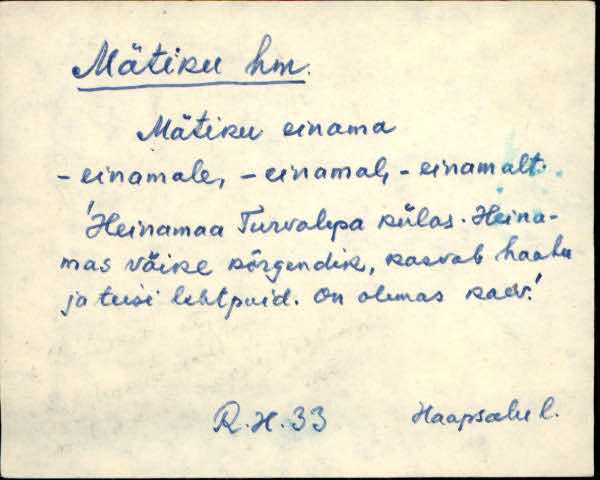 Mätiku hm.
Mätiku einama
- einamale, - einamal, - einamalt.
'Heinamaa Turvalepa külas. Heina-
mas väike kõrgendik, kasvab haabu
ja teisi lehtpuid. On olemas kaev.'
R.H. 33 Haapsalu l.